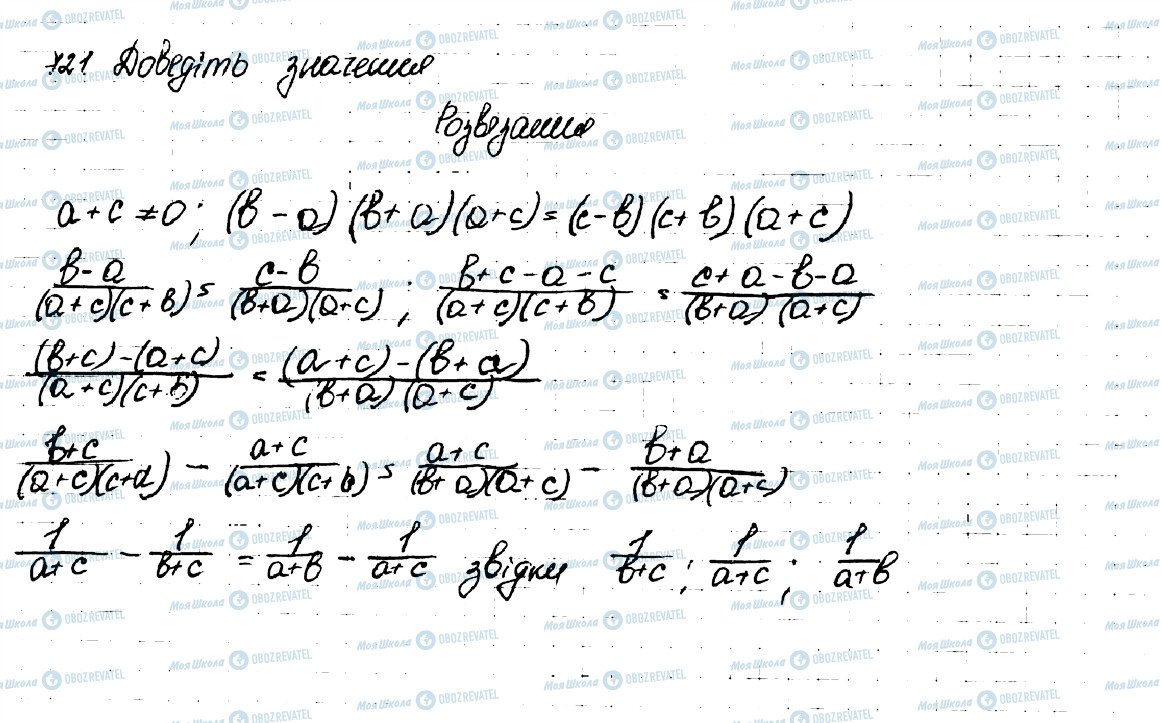 721 Доведіть значення
Розвязання
a + c ≠ 0; (b - a)(b + a)(a + c) = (c - b)(c + b)(a + c)
(b - a)/((a + c)(c + b)) = (c - b)/((b + a)(a + c)); (b + c - a - c)/((a + c)(c + b)) = (c + a - b - a)/((b + a)(a + c))
((b + c) - (a + c))/((a + c)(c + b)) = ((a + c) - (b + a))/((b + a)(a + c))
(b + c)/((a + c)(c + a)) - (a + c)/((a + c)(c + b)) = (a + c)/((b + a)(a + c)) - (b + a)/((b + a)(a + c))
1/(a + c) - 1/(b + c) = 1/(a + b) - 1/(a + c) звідки 1/(b + c); 1/(a + c); 1/(a + b)
Моя Школа OBOZREVATEL